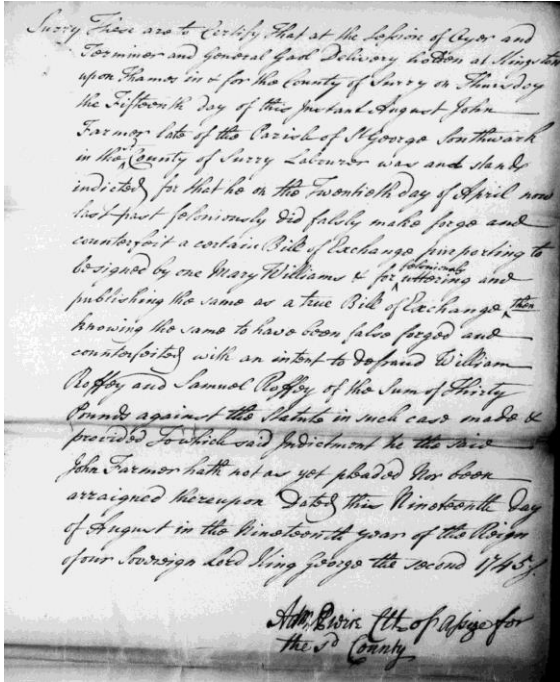 Surry These are to Certify That at the Session of Oyer and
Terminer and General Gaol Delivery holden at Kingston
upon Thames in & for the County of Surry on Thursday
the Fifteenth day of this Instant August John
Farmer late of the Parish of St George Southwark
in the County of Surry Labourer was and stands
indicted for that he on the Twentieth day of April now
last past feloniously did falsly make forge and
counterfeit a certain Bill of Exchange purporting to
be signed by one Mary Williams & for feloniously uttering and
publishing the same as a true Bill of Exchange then
knowing the same to have been false forged and
counterfeited with an intent to defraud William
Roffey and Samuel Roffey of the Sum of Thirty
Pounds against the Statute in such case made &
provided To which said Indictment he the said
John Farmer hath not as yet pleaded Nor been
arraigned thereupon Dated this Nineteenth day
of August in the Nineteenth year of the Reign
of our Sovereign Lord King George the second 1745
Clk of Assize for
the sd County